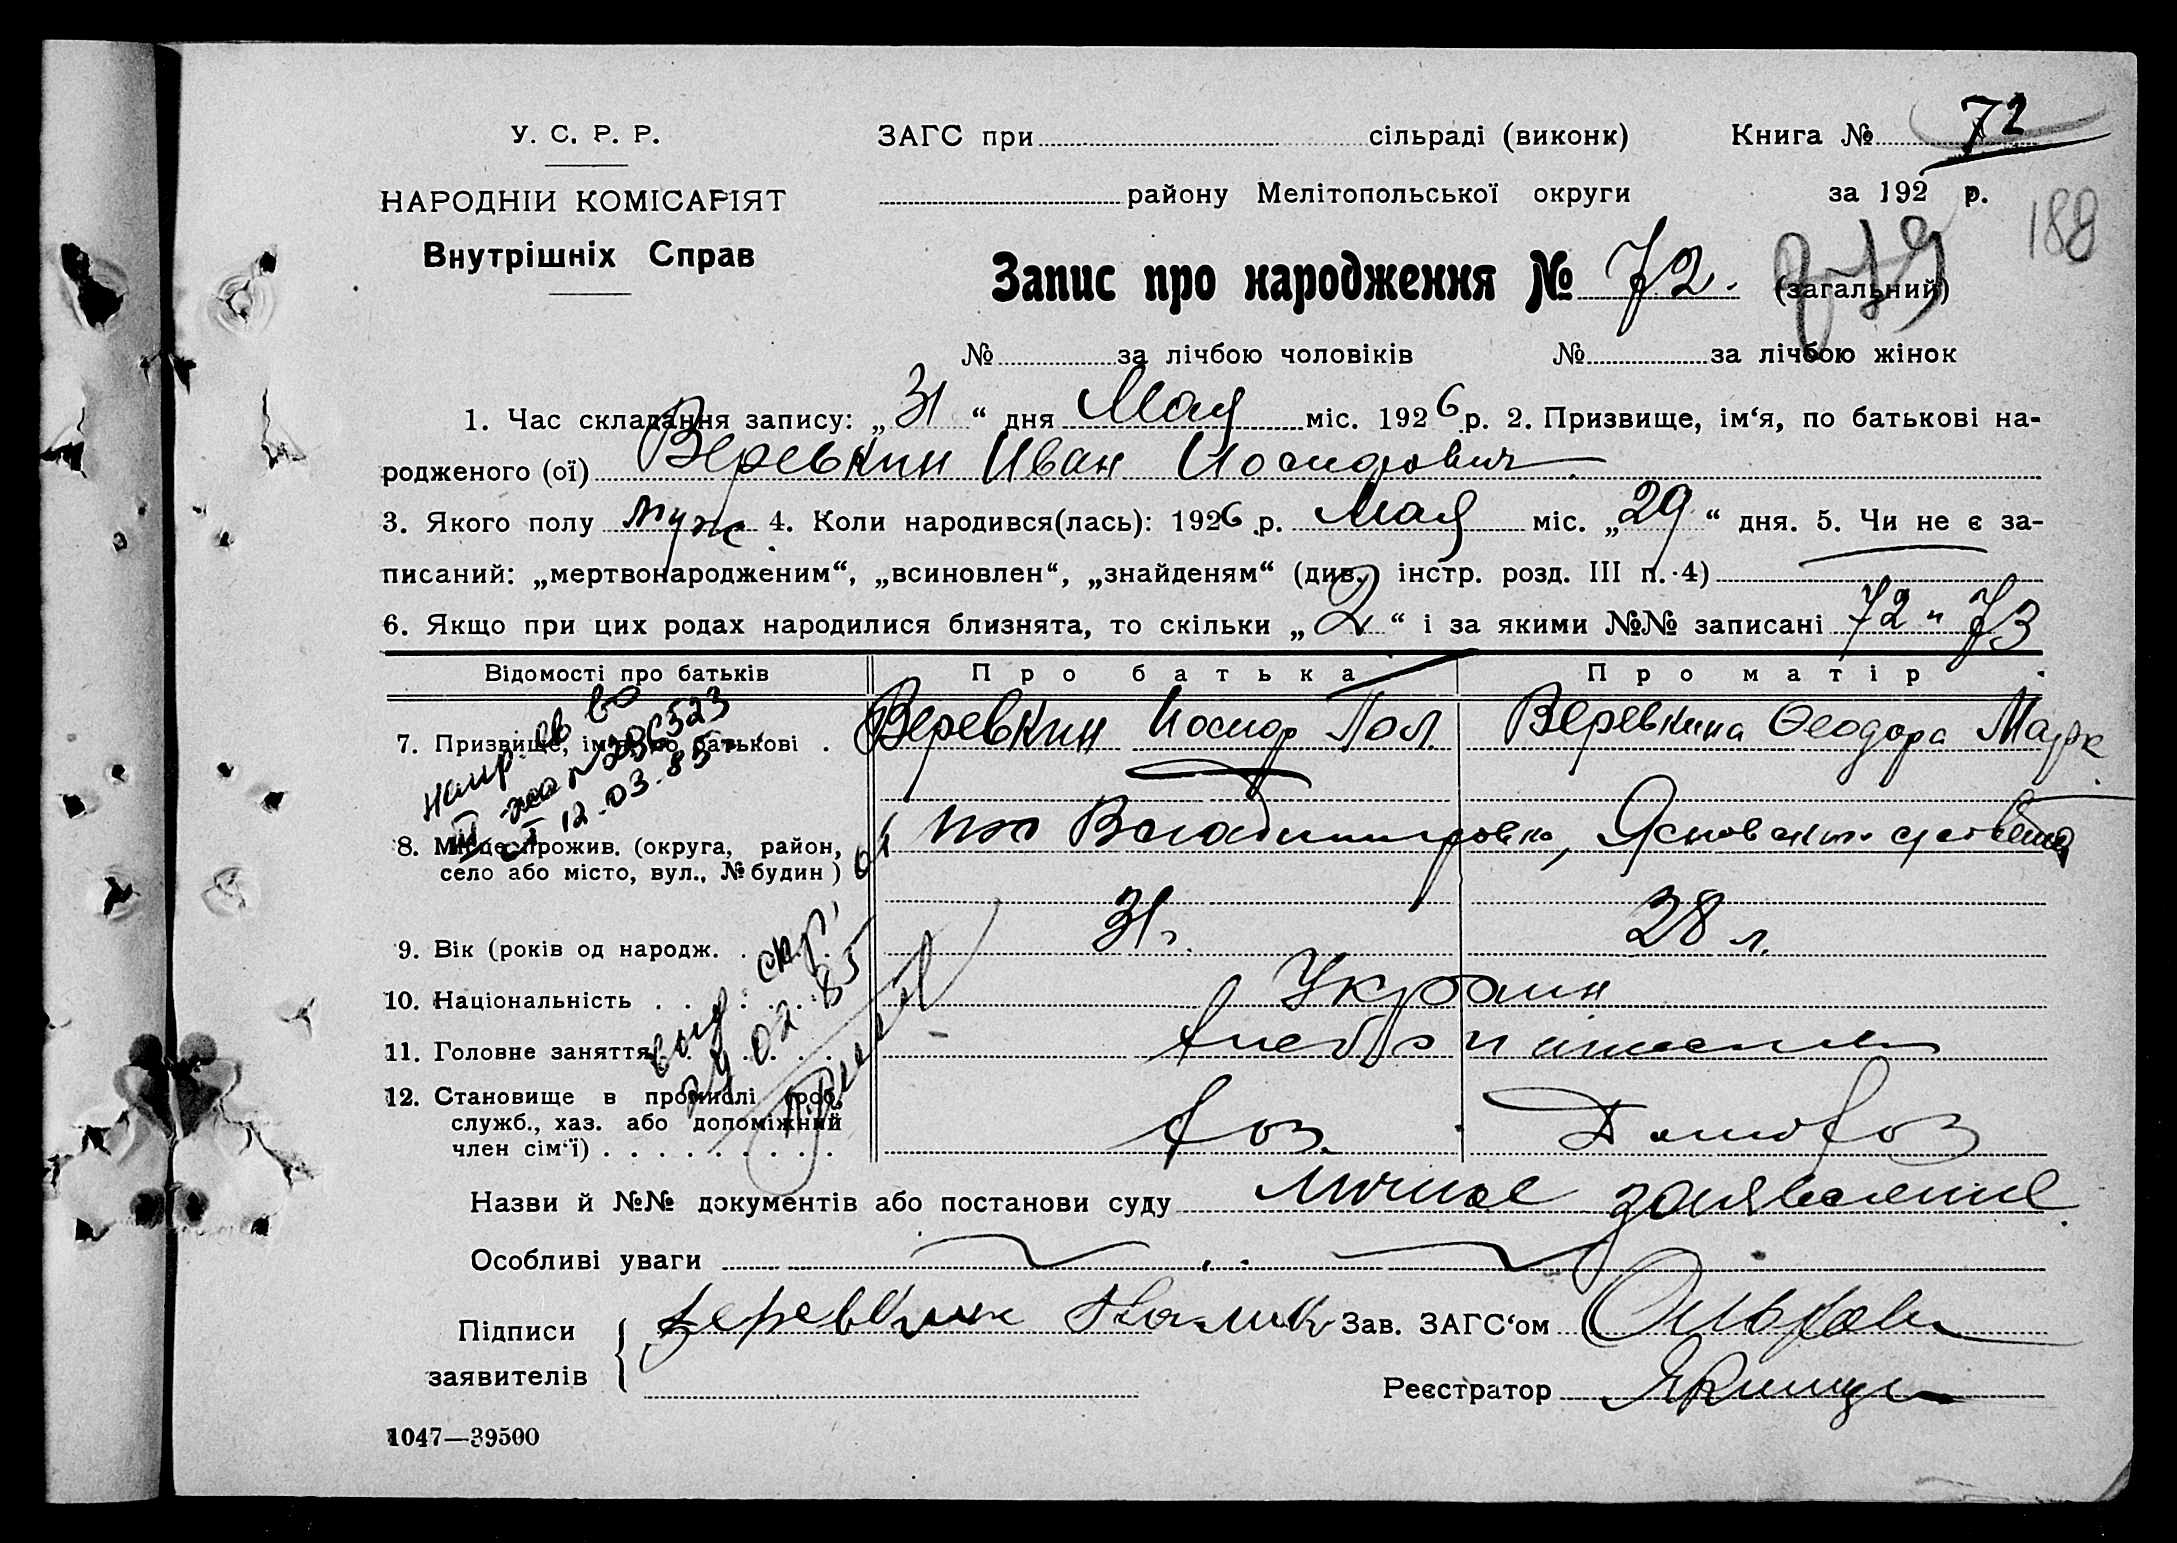 У. С. Р. Р.
НАРОДНІЙ КОМІСАРІЯТ
Внутрішніх Справ
ЗАГС при сільраді (виконк)
Книга № 72
району Мелітопольської округи
за 192 р.
188
Запис про народження № 72. (загальний)
№ за лічбою чоловіків № за лічбою жінок
1. Час складання запису: „31“ дня Мая міс. 1926 р. 2. Призвище, ім‘я, по батькові на-
родженого (ої) Веревкин Иван Иосифович
3. Якого полу муж 4. Коли народився(лась): 1926 р. Мая міс. „29“ дня. 5. Чи не є за-
писаний: „мертвонародженим“, „всиновлен“, „знайденям“ (див. інстр. розд. III п. 4)
6. Якщо при цих родах народилися близнята, то скільки „2“ і за якими №№ записані 72 и 73
Відомості про батьків Про батька Про матір
7. Призвище, ім‘я, по батькові . Веревкин Иосиф Пол. Веревкина Феодора Марк
12.03.85
8. Місце прожив. (округа, район,
село або місто, вул., № будин)
Владимировка,
9. Вік (років од народж. . 31 г. 28 л.
10. Національність . . . . Украин
02.85
11. Головне заняття . . . . хлебопашест
12. Становище в промислі (роб.,
служб., хаз. або допоміжний
член сім‘ї) . . . . . . . . . хоз. Домохоз
Назви й №№ документів або постанови суду личное заявление
Особливі уваги
Підписи
заявителів
Веревкин
Зав. ЗАГС‘ом
Реєстратор
1047—39500